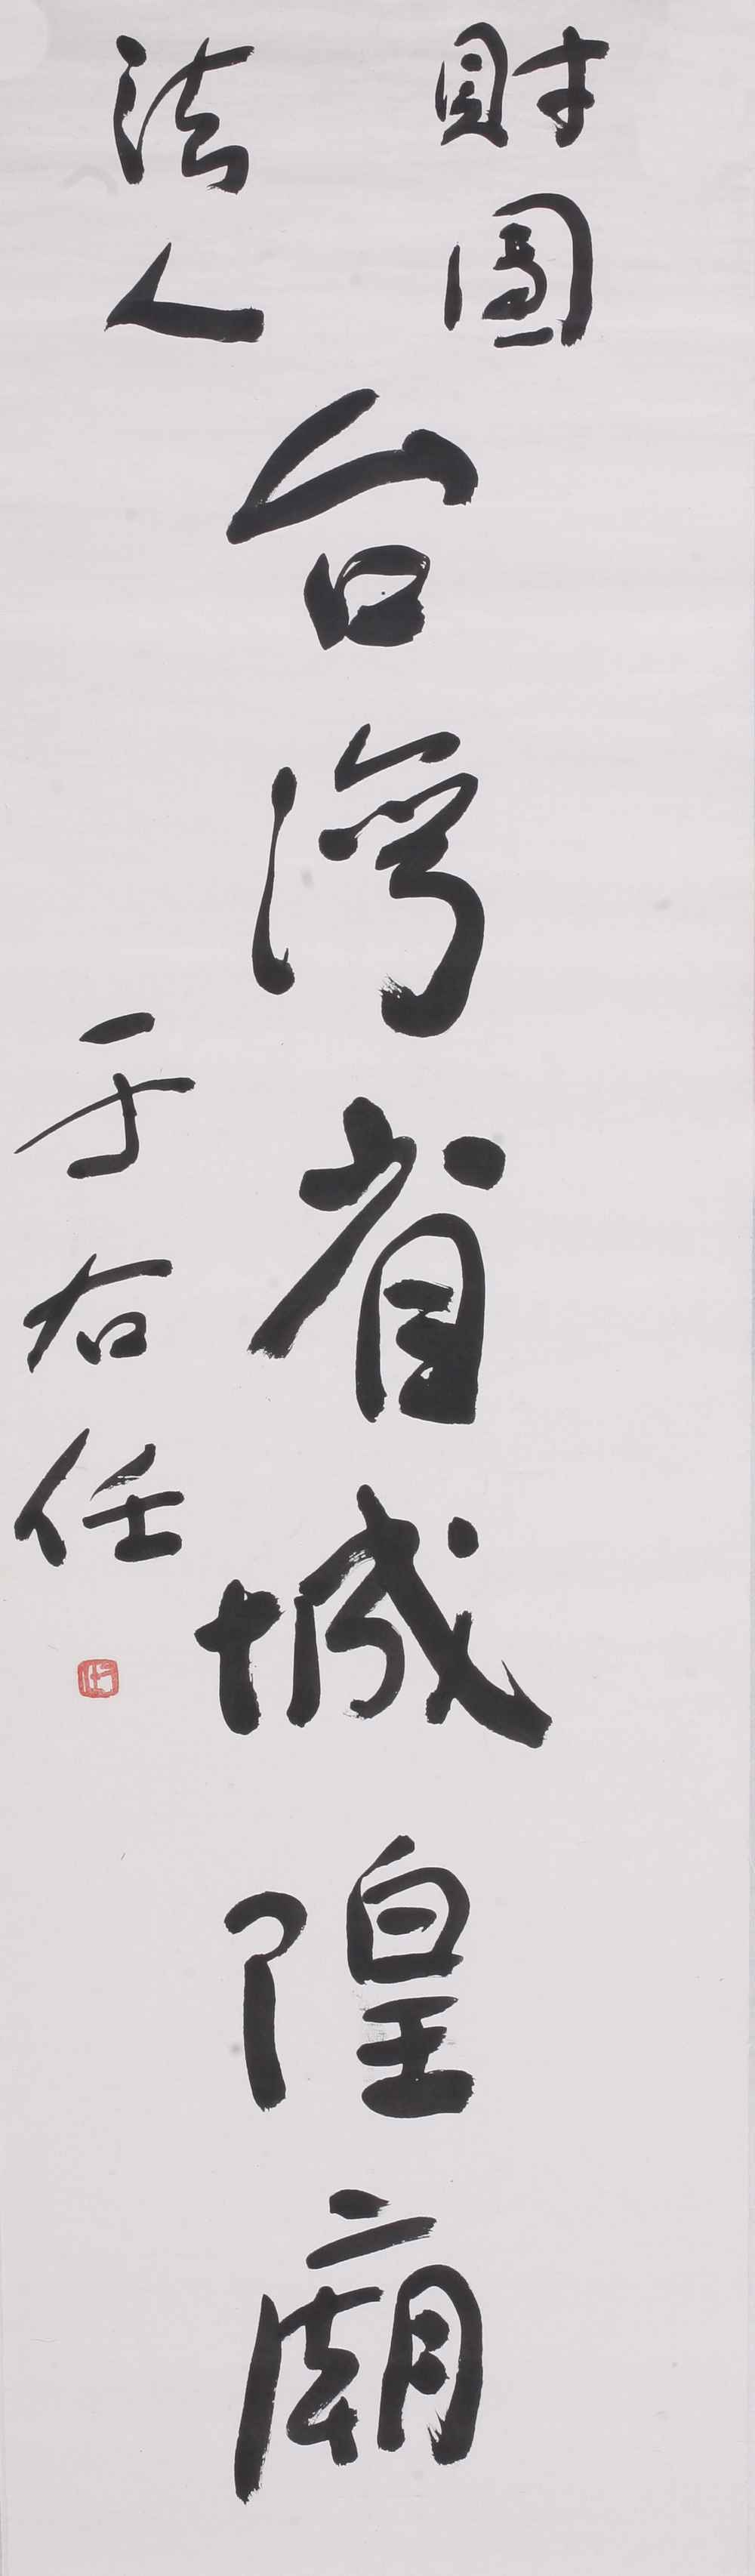 財團
法人
台灣省城隍廟
于右任